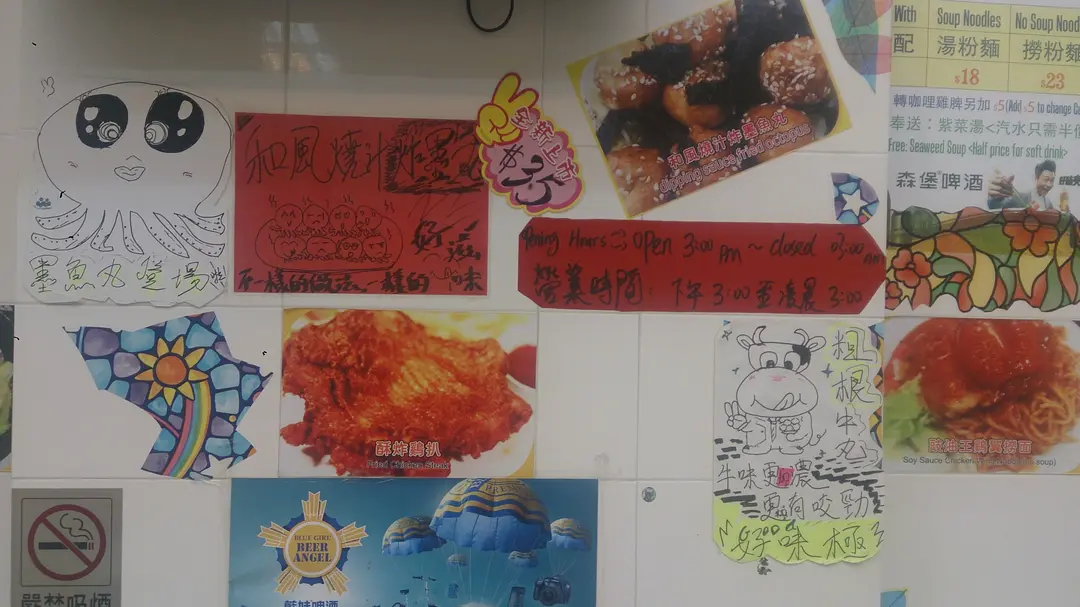 With
Soup Noodles
No Soup Nood
配
湯粉麵
撈粉麵
$18
$23
轉咖哩雞脾另加 $5(Add $5 to change Cu
奉送：紫菜湯<汽水只需半價
Free: Seaweed Soup <Half price for soft drink>
森堡啤酒
墨魚丸登場啦
和風燒汁炸墨
不一樣的做法,一樣的 味
全新上市
$25
和風燒汁炸墨魚丸
dipping sauce fried octopus
pening Hours Open 3:00 PM ~ closed 03:00 AM
營業時間：下午 3:00 至凌晨 3:00
酥炸雞扒
Fried Chicken Steak
粗根牛丸
牛味更加濃
更有咬勁
好味極
豉油王雞翼撈面
Soy Sauce Chicken soup)
BLUE GIRL
BEER
ANGEL
藍妹啤酒
嚴禁吸煙